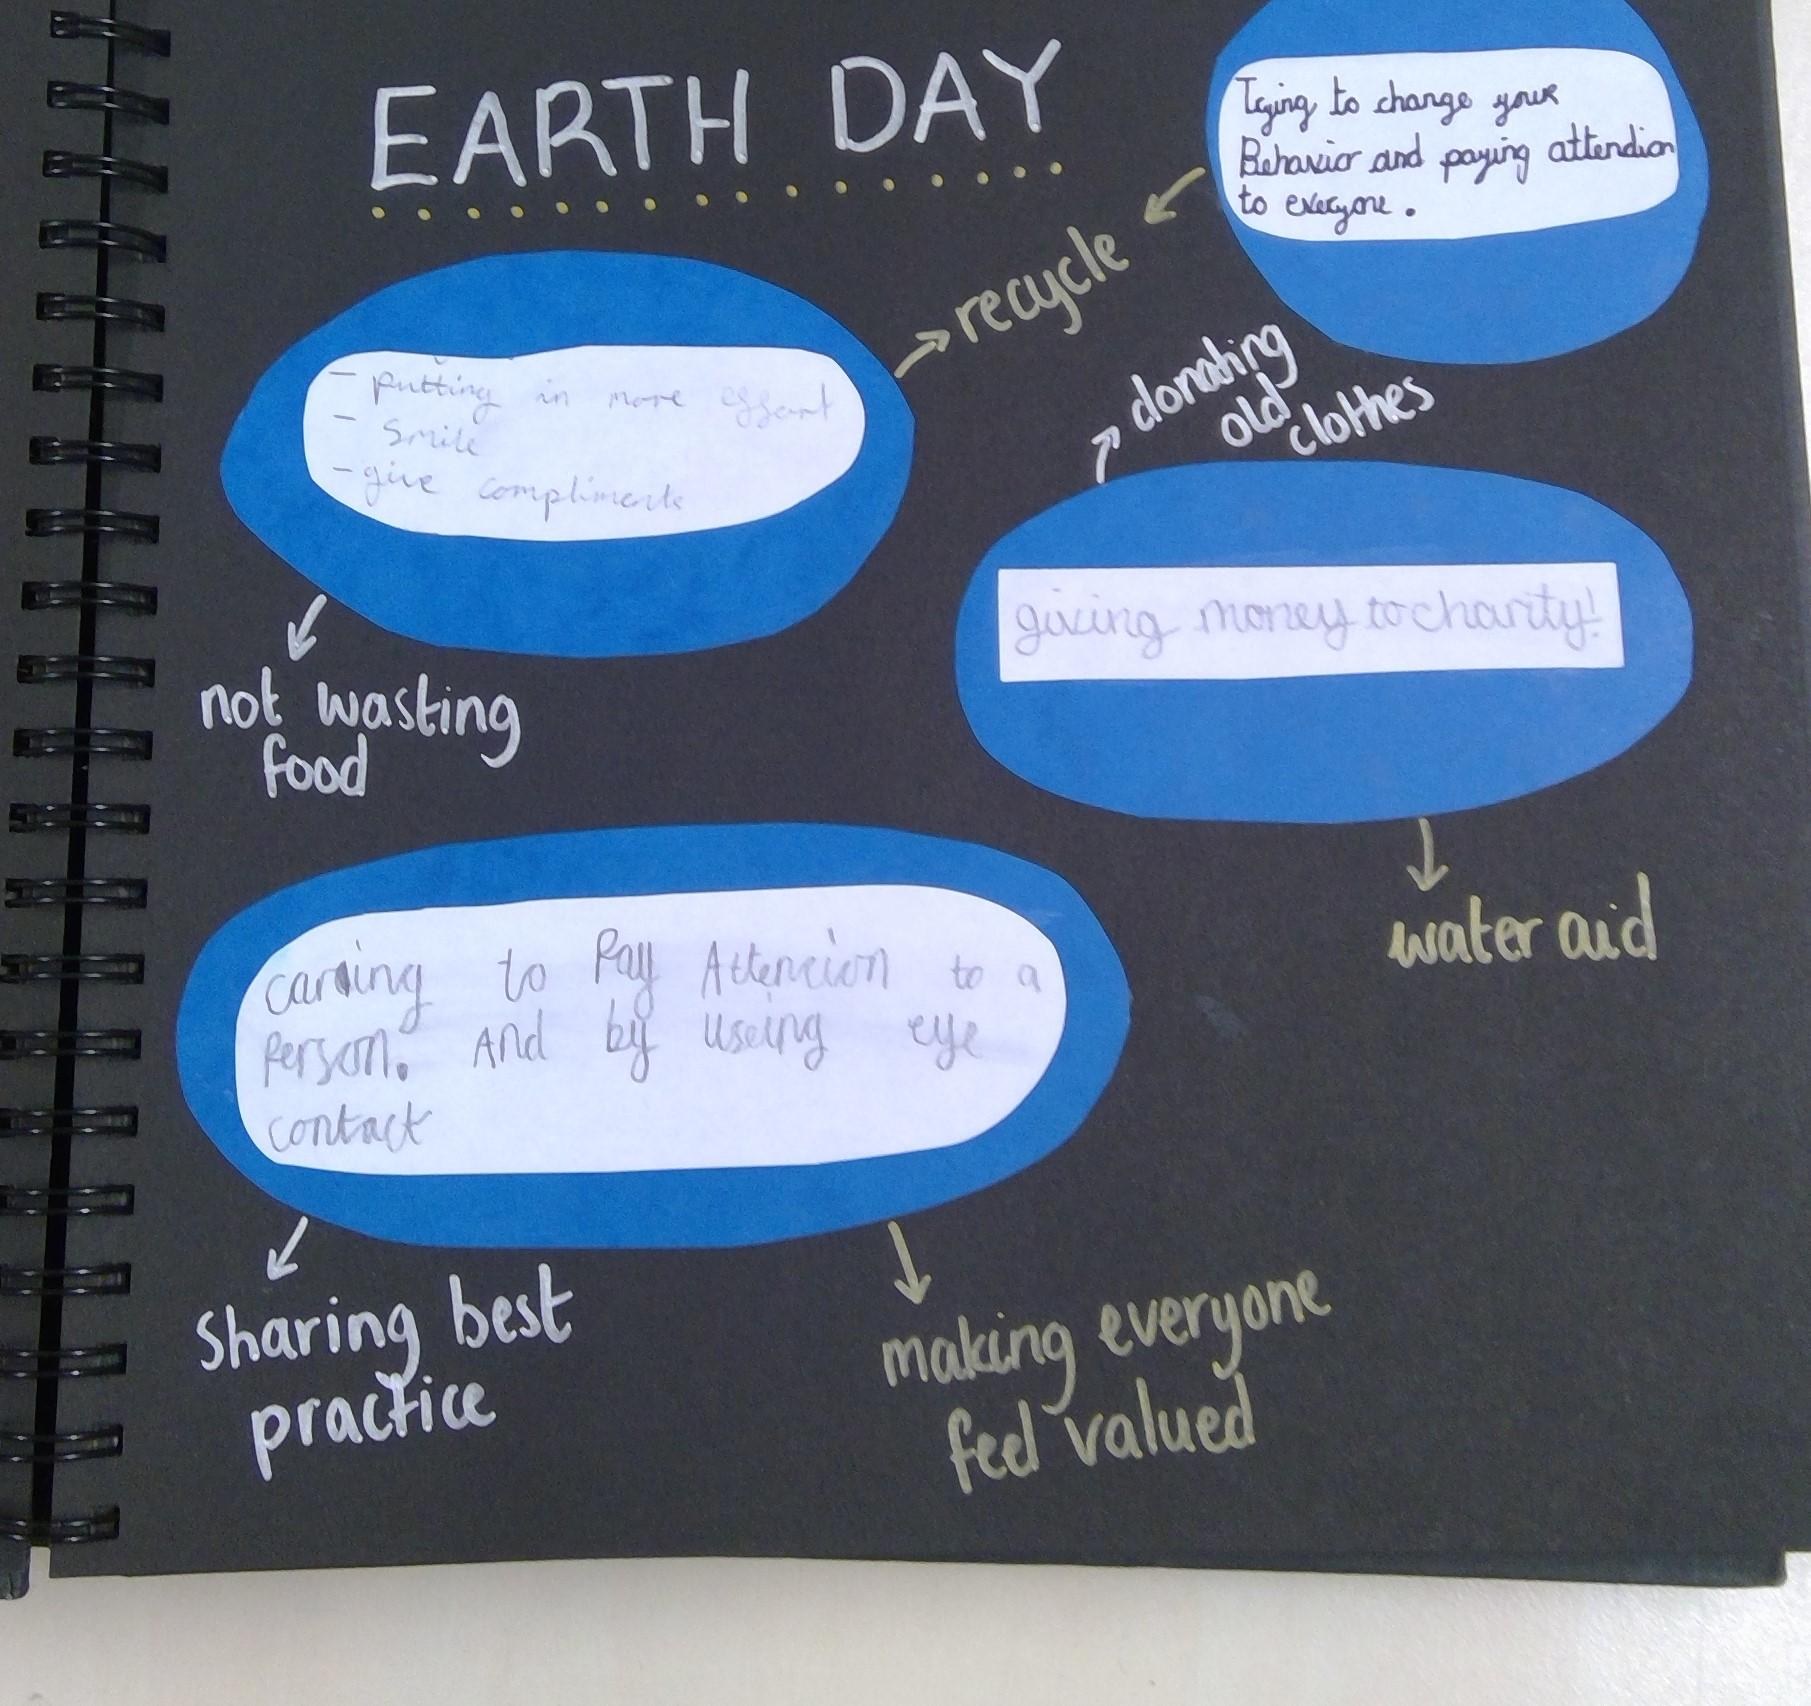 EARTH DAY
Trying to change your
Behavior and paying attendion
to everyone.
recycle
- putting in more effort
- Smile
- give compliments
donating
old
clothes
giving money to charity!
not wasting
food
water aid
carring to Pay Attencion to a
Person. And by useing eye
contact
Sharing best
practice
making everyone
feel valued